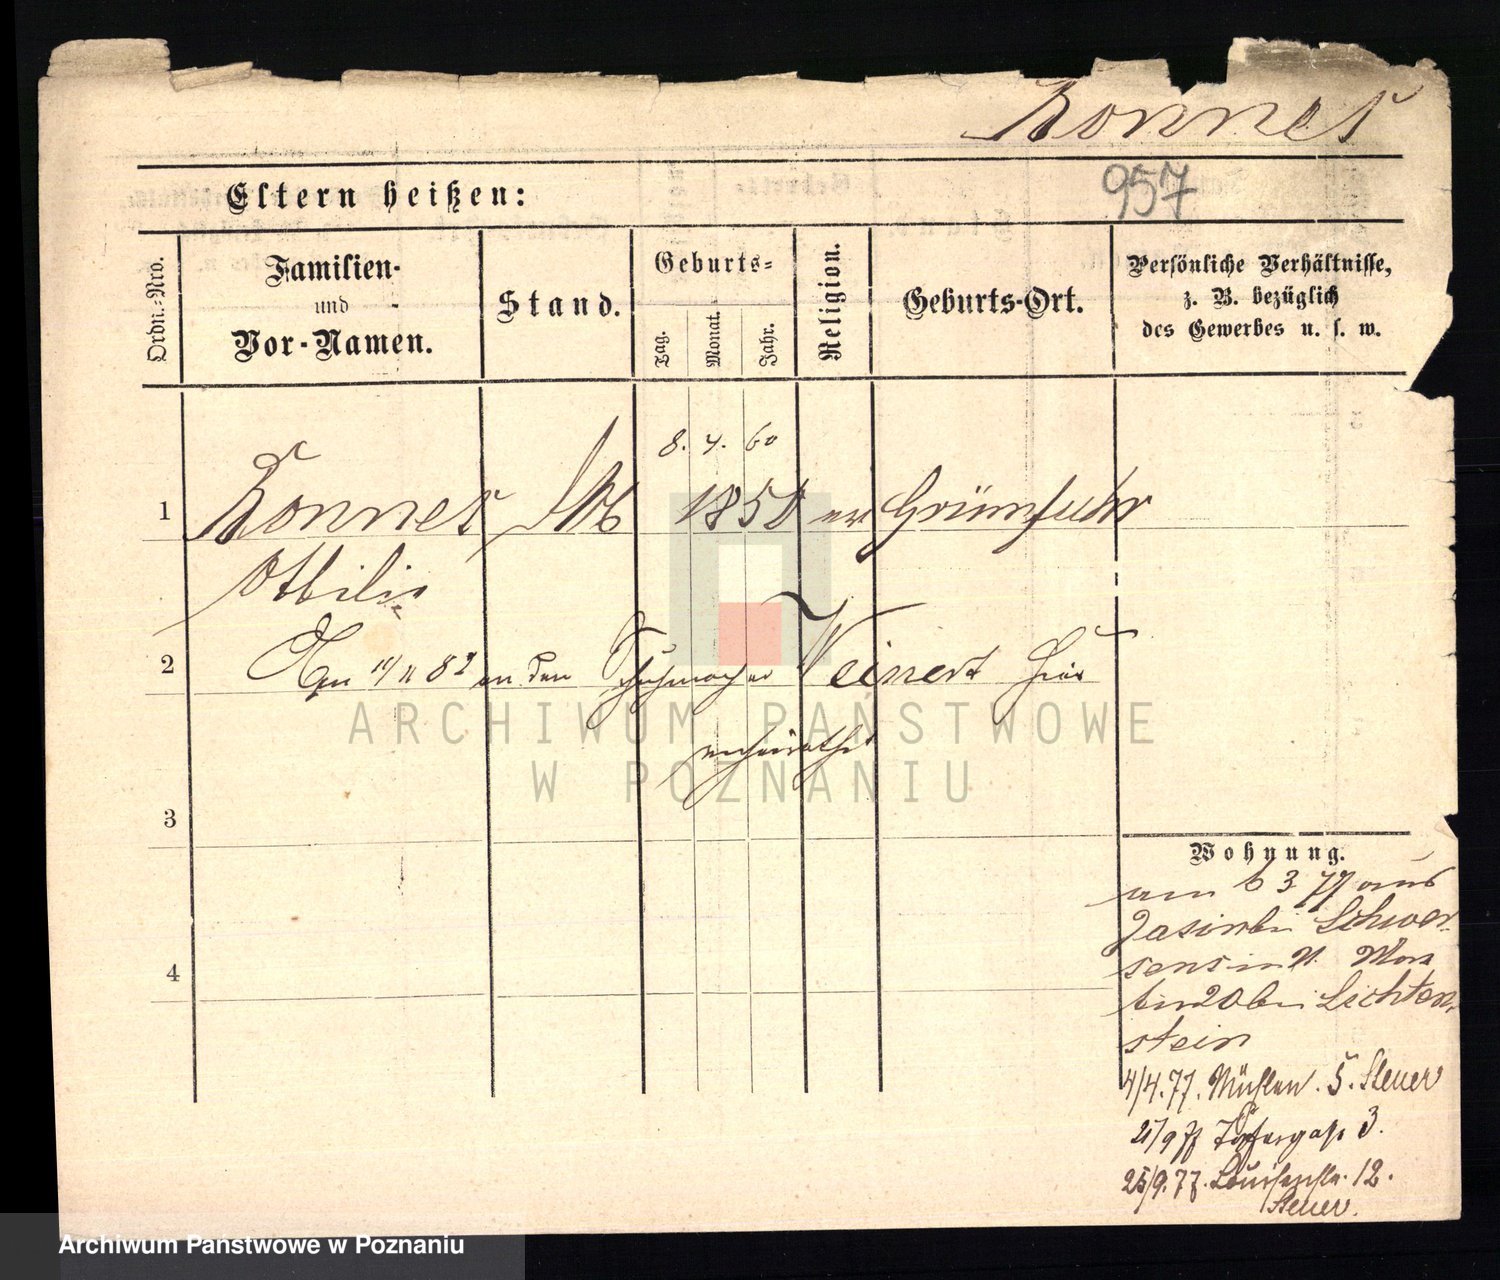 Konnes
957
Eltern heißen:
Ordn.-Nro.
Familien-
und
Vor-Namen.
Stand.
Geburts-
Tag.
Monat.
Jahr.
Religion.
Geburts-Ort.
Persönliche Verhältnisse,
z. B. bezüglich
des Gewerbes u. s. w.
8. 4. 60
1 Konnes 1858 ev
Ottilie
2 11/11 82 an den Schuhmacher Weinert hier
verheirathet
3
4
Wohnung.
am 6 3 77 aus
Schwer-
senz
20 bei Lichten-
stein
4/4.77. Mühlen. 5. Steuer
Töpfergasse 3.
25/9.77. Louisenstr. 12.
Steuer.
ARCHIWUM PAŃSTWOWE
W POZNANIU
Archiwum Państwowe w Poznaniu